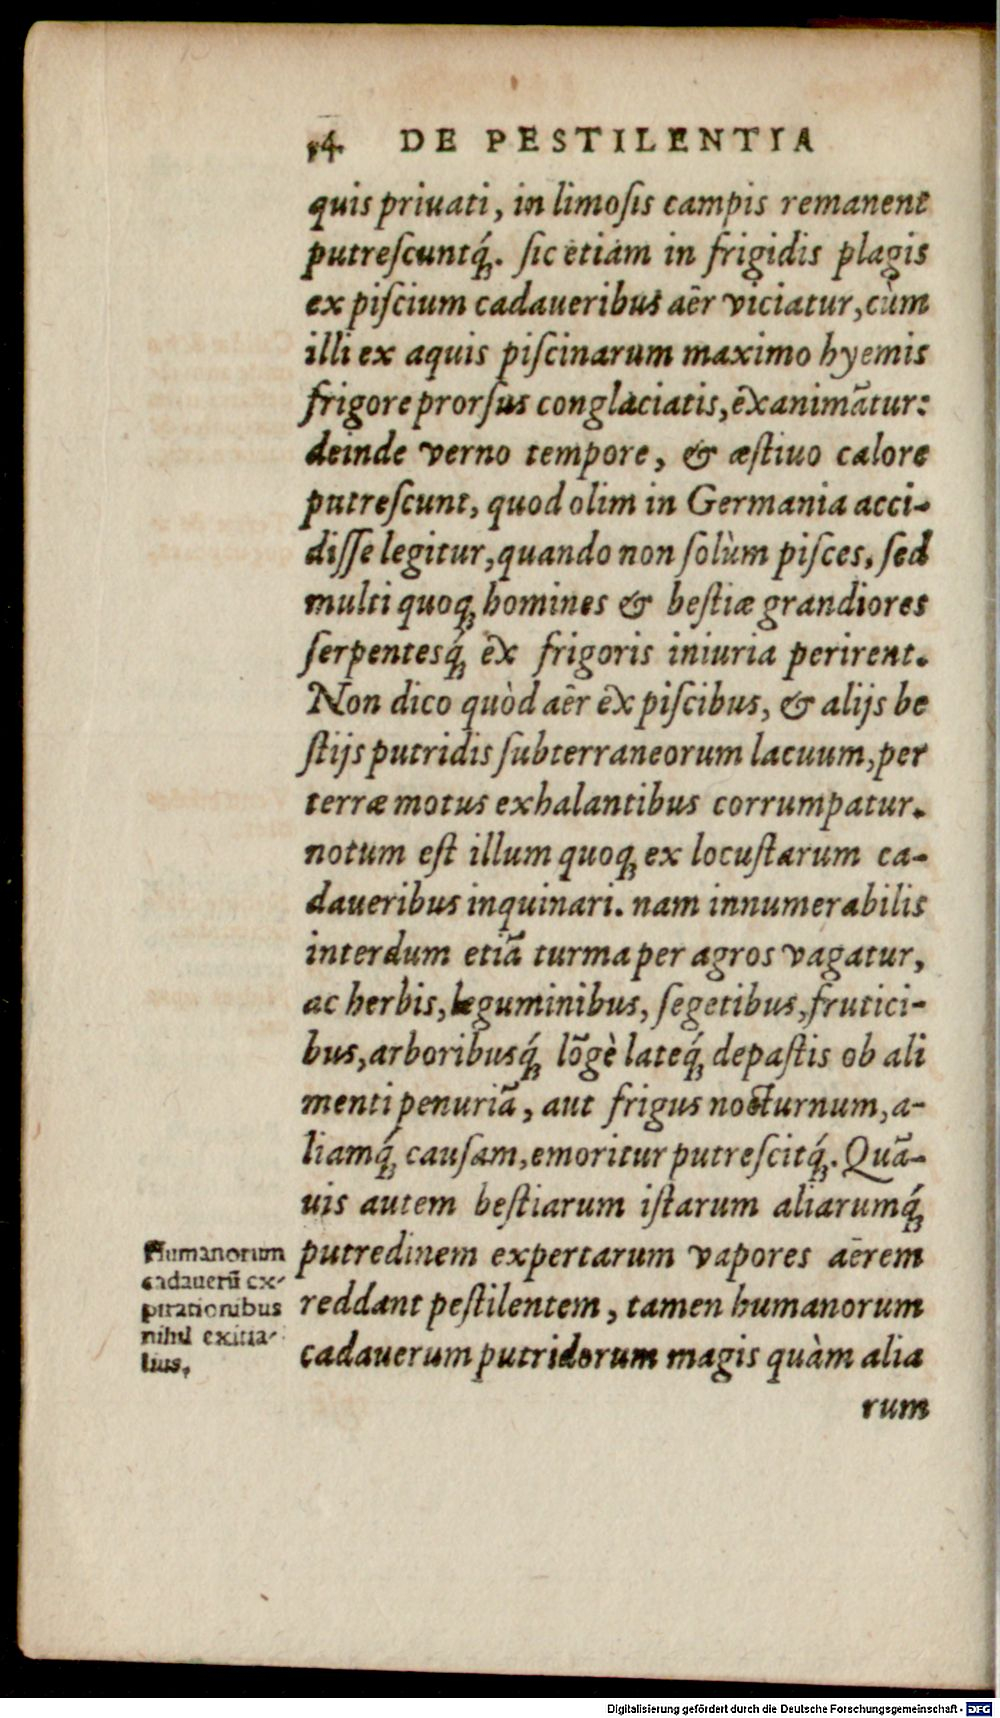 14 DE PESTILENTIA
quis priuati, in limoſis campis remanent
putreſcuntq́;. ſic etiam in frigidis plagis
ex piſcium cadaueribus aër viciatur, cùm
illi ex aquis piſcinarum maximo hyemis
frigore prorſus conglaciatis, ex animātur:
deinde verno tempore, & æſtiuo calore
putreſcunt, quod olim in Germania acci-
diſſe legitur, quando non ſolùm piſces, ſed
multi quoq; homines & beſtiæ grandiores
ſerpentesq́; ex frigoris iniuria perirent.
Non dico quòd aër ex piſcibus, & alijs be
ſtijs putridis ſubterraneorum lacuum, per
terræ motus exhalantibus corrumpatur.
notum eſt illum quoq; ex locuſtarum ca-
daueribus inquinari. nam innumerabilis
interdum etiā turma per agros vagatur,
ac herbis, leguminibus, ſegetibus, frutici-
bus, arboribusq́; lōgè lateq́; depaſtis ob ali
menti penuriā, aut frigus nocturnum, a-
liamq́; cauſam, emoritur putreſcitq́;. Quā-
uis autem beſtiarum iſtarum aliarumq́;
putredinem expertarum vapores aërem
reddant peſtilentem, tamen humanorum
cadauerum putridorum magis quàm alia
rum
Humanorum
cadauerū ex-
pirationibus
nihil exitia-
lius.
Digitalisierung gefördert durch die Deutsche Forschungsgemeinschaft - DFG